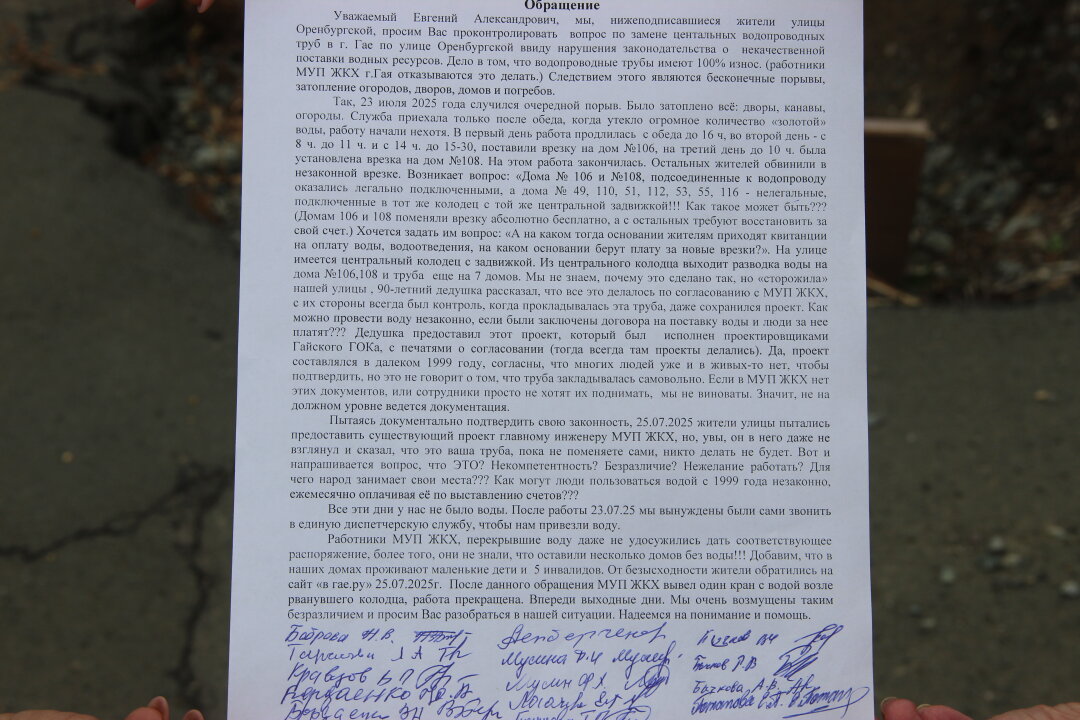 Обращение
Уважаемый Евгений Александрович, мы, нижеподписавшиеся жители улицы
Оренбургской, просим Вас проконтролировать вопрос по замене центальных водопроводных
труб в г. Гае по улице Оренбургской ввиду нарушения законодательства о некачественной
поставки водных ресурсов. Дело в том, что водопроводные трубы имеют 100% износ. (работники
МУП ЖКХ г.Гая отказываются это делать.) Следствием этого являются бесконечные порывы,
затопление огородов, дворов, домов и погребов.
Так, 23 июля 2025 года случился очередной порыв. Было затоплено всё: дворы, канавы,
огороды. Служба приехала только после обеда, когда утекло огромное количество «золотой»
воды, работу начали нехотя. В первый день работа продлилась с обеда до 16 ч, во второй день - с
8 ч. до 11 ч. и с 14 ч. до 15-30, поставили врезку на дом №106, на третий день до 10 ч. была
установлена врезка на дом №108. На этом работа закончилась. Остальных жителей обвинили в
незаконной врезке. Возникает вопрос: «Дома № 106 и №108, подсоединенные к водопроводу
оказались легально подключенными, а дома № 49, 110, 51, 112, 53, 55, 116 - нелегальные,
подключенные в тот же колодец с той же центральной задвижкой!!! Как такое может быть???
(Домам 106 и 108 поменяли врезку абсолютно бесплатно, а с остальных требуют восстановить за
свой счет.) Хочется задать им вопрос: «А на каком тогда основании жителям приходят квитанции
на оплату воды, водоотведения, на каком основании берут плату за новые врезки?». На улице
имеется центральный колодец с задвижкой. Из центрального колодца выходит разводка воды на
дома №106,108 и труба еще на 7 домов. Мы не знаем, почему это сделано так, но «сторожила»
нашей улицы , 90-летний дедушка рассказал, что все это делалось по согласованию с МУП ЖКХ,
с их стороны всегда был контроль, когда прокладывалась эта труба, даже сохранился проект. Как
можно провести воду незаконно, если были заключены договора на поставку воды и люди за нее
платят??? Дедушка предоставил этот проект, который был исполнен проектировщиками
Гайского ГОКа, с печатями о согласовании (тогда всегда там проекты делались). Да, проект
составлялся в далеком 1999 году, согласны, что многих людей уже и в живых-то нет, чтобы
подтвердить, но это не говорит о том, что труба закладывалась самовольно. Если в МУП ЖКХ нет
этих документов, или сотрудники просто не хотят их поднимать, мы не виноваты. Значит, не на
должном уровне ведется документация.
Пытаясь документально подтвердить свою законность, 25.07.2025 жители улицы пытались
предоставить существующий проект главному инженеру МУП ЖКХ, но, увы, он в него даже не
взглянул и сказал, что это ваша труба, пока не поменяете сами, никто делать не будет. Вот и
напрашивается вопрос, что ЭТО? Некомпетентность? Безразличие? Нежелание работать? Для
чего народ занимает свои места??? Как могут люди пользоваться водой с 1999 года незаконно,
ежемесячно оплачивая её по выставлению счетов???
Все эти дни у нас не было воды. После работы 23.07.25 мы вынуждены были сами звонить
в единую диспетчерскую службу, чтобы нам привезли воду.
Работники МУП ЖКХ, перекрывшие воду даже не удосужились дать соответствующее
распоряжение, более того, они не знали, что оставили несколько домов без воды!!! Добавим, что в
наших домах проживают маленькие дети и 5 инвалидов. От безысходности жители обратились на
сайт «в гае.ру» 25.07.2025г. После данного обращения МУП ЖКХ вывел один кран с водой возле
рванувшего колодца, работа прекращена. Впереди выходные дни. Мы очень возмущены таким
безразличием и просим Вас разобраться в нашей ситуации. Надеемся на понимание и помощь.
Кравцов
Мусина
Бычкова А.В.
Потапова